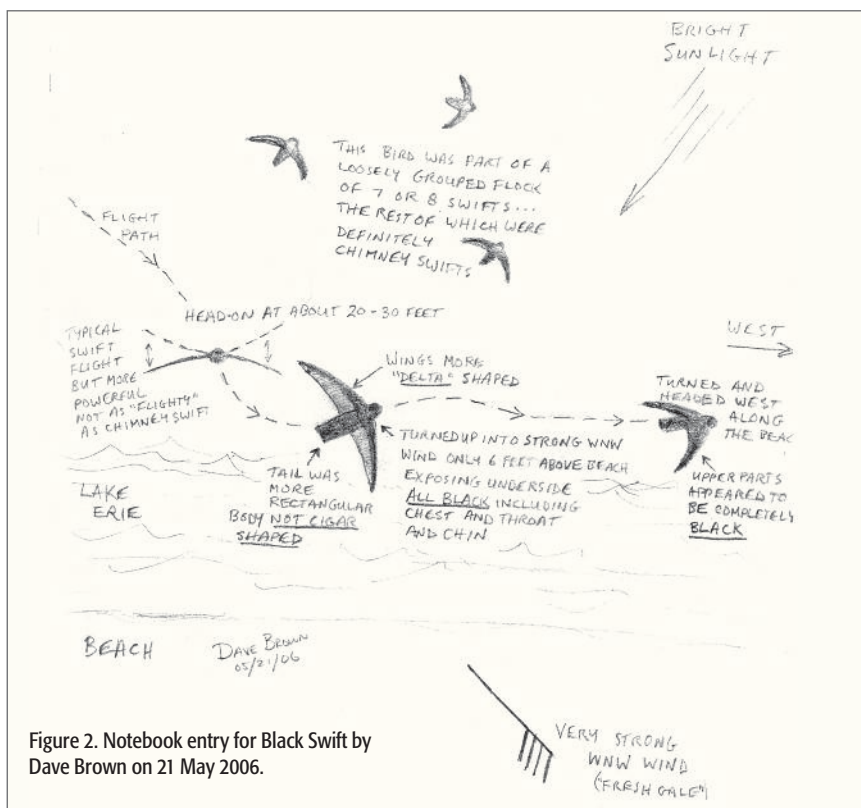 BRIGHT
SUNLIGHT
THIS BIRD WAS PART OF A
LOOSELY GROUPED FLOCK
OF 7 OR 8 SWIFTS...
THE REST OF WHICH WERE
DEFINITELY
CHIMNEY SWIFTS
FLIGHT
PATH
HEAD-ON AT ABOUT 20-30 FEET
TYPICAL
SWIFT
FLIGHT
BUT MORE
POWERFUL
NOT AS "FLIGHTY"
AS CHIMNEY SWIFT
WINGS MORE
"DELTA" SHAPED
WEST
TURNED AND
HEADED WEST
ALONG
THE BEAC
TAIL WAS
MORE
RECTANGULAR
BODY NOT CIGAR
SHAPED
TURNED UP INTO STRONG WNW
WIND ONLY 6 FEET ABOVE BEACH
EXPOSING UNDERSIDE
ALL BLACK INCLUDING
CHEST AND THROAT
AND CHIN
UPPERPARTS
APPEARED TO
BE COMPLETELY
BLACK
LAKE
ERIE
BEACH
DAVE BROWN
05/21/06
VERY STRONG
WNW WIND
("FRESH GALE")
Figure 2. Notebook entry for Black Swift by
Dave Brown on 21 May 2006.